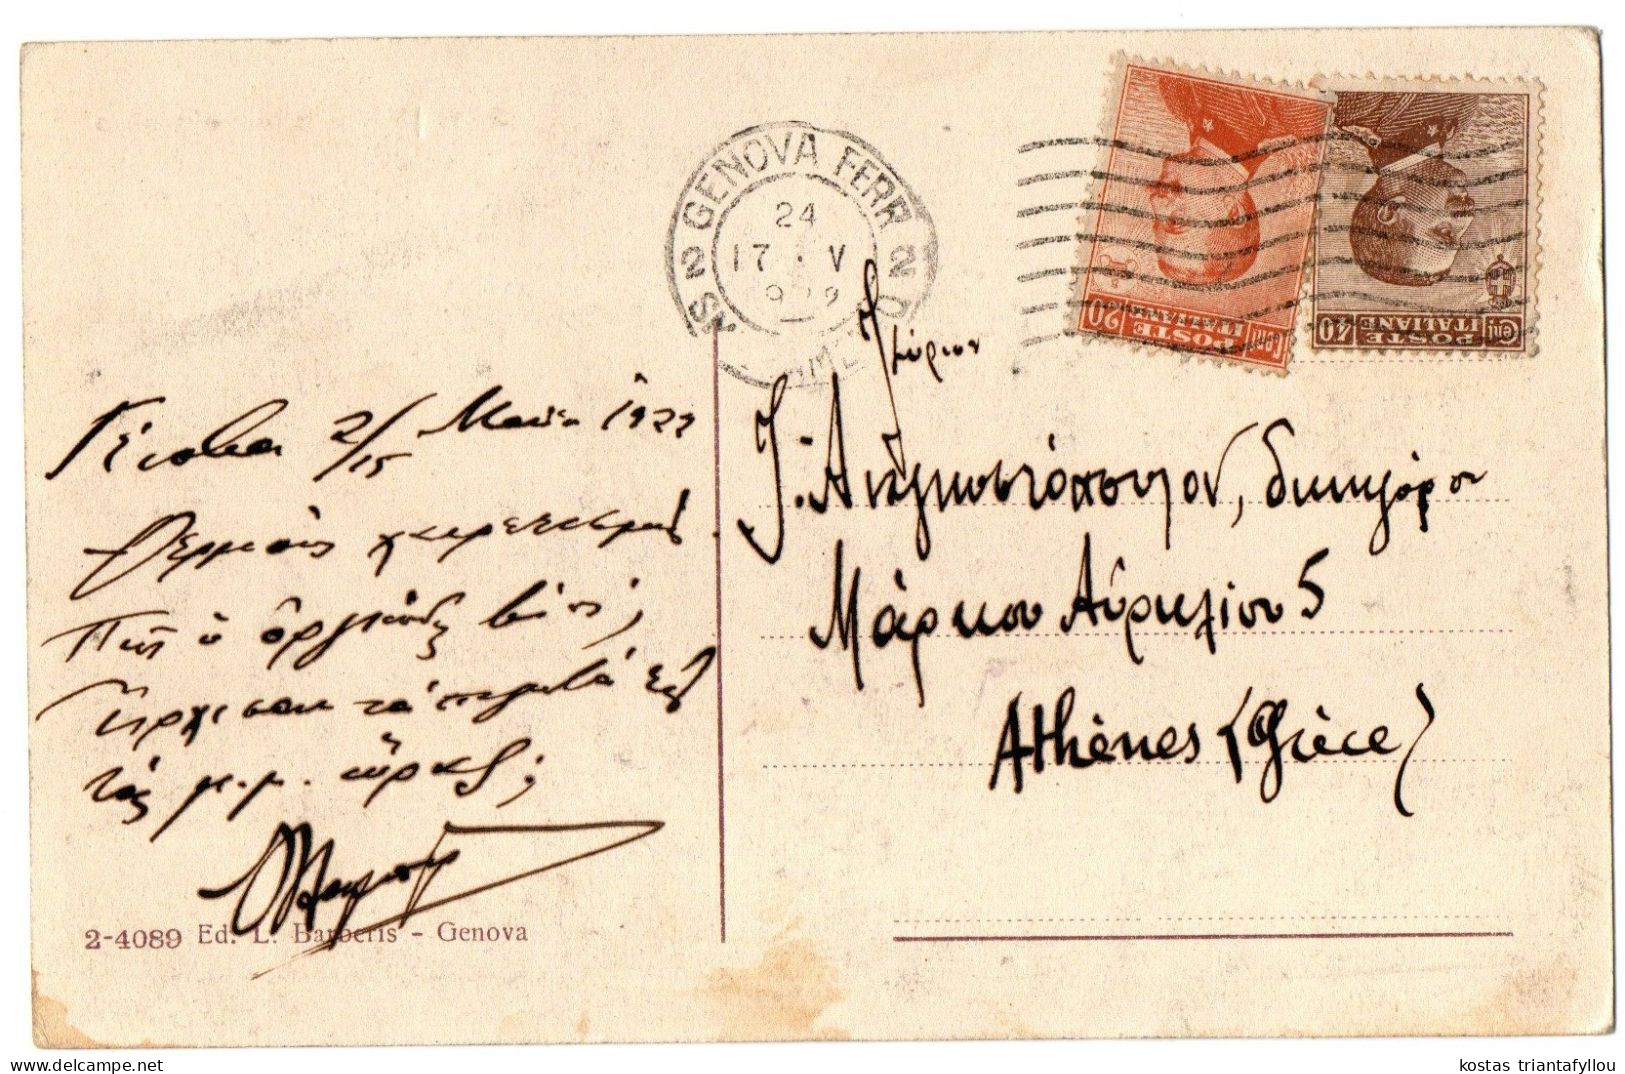 GENOVA FERR
2 2
24
17 · V
Cent 20
POSTE
ITALIANE
Cent 40
POSTE
ITALIANE
Γένοβα 2/15 Μαΐου 1922
Θερμοὺς χαιρετισμούς.
Πῶς ὁ
τὰ
τὰς μ.μ. ὥρας;
Κύριον
Ἰ. Ἀναγνωστόπουλον, δικηγόρον
Μάρκου Αὐρηλίου 5
Athènes (Grèce)
2-4089 Ed. L. Barberis - Genova
kostas triantafyllou